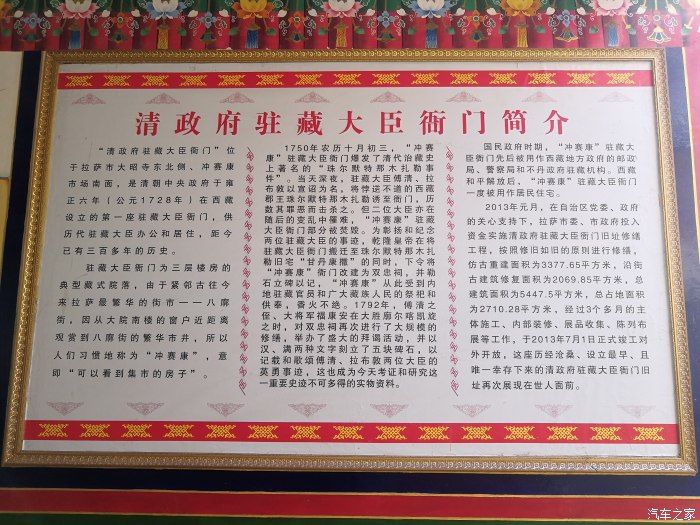 清政府驻藏大臣衙门简介
“清政府驻藏大臣衙门”位
于拉萨市大昭寺东北侧、冲赛康
市场南面，是清朝中央政府于雍
正六年（公元1728年）在西藏
设立的第一座驻藏大臣衙门，供
历代驻藏大臣办公和居住，距今
已有三百多年的历史。
驻藏大臣衙门为三层楼房的
典型藏式院落，由于紧邻古往今
来拉萨最繁华的街市——八廓
街，因从大院南楼的窗户近距离
观赏到八廓街的繁华市井，所以
人们习惯地称为“冲赛康”，意
即“可以看到集市的房子”。
1750年农历十月初三，“冲赛
康”驻藏大臣衙门爆发了清代治藏史
上著名的“珠尔默特那木扎勒事
件”。当天深夜，驻藏大臣傅清、拉
布敦以宣诏为名，将悖逆不道的西藏
郡王珠尔默特那木扎勒诱至衙门，历
数其罪恶而击杀之。但二位大臣亦在
随后的变乱中罹难，“冲赛康”驻藏
大臣衙门部分被焚毁。为彰扬和纪念
两位驻藏大臣的事迹，乾隆皇帝在将
驻藏大臣衙门搬迁至珠尔默特那木扎
勒旧宅“甘丹康撒”的同时，下令将
“冲赛康”衙门改建为双忠祠，并勒
石立碑以记，“冲赛康”从此受到内
地驻藏官员和广大藏族人民的祭祀和
供奉，香火不绝。1792年，傅清之
侄、大将军福康安在大胜廓尔喀凯旋
之时，对双忠祠再次进行了大规模的
修缮，举办了盛大的拜谒活动，并以
汉、满两种文字刻立了五块碑石，以
记载和歌颂傅清、拉布敦两位大臣的
英勇事迹，这也成为今天考证和研究这
一重要史迹不可多得的实物资料。
国民政府时期，“冲赛康”驻藏大
臣衙门先后被用作西藏地方政府的邮政
局、警察局和不丹政府驻藏机构。西藏
和平解放后，“冲赛康”驻藏大臣衙门
一度被用作居民住宅。
2013年元月，在自治区党委、政府
的关心支持下，拉萨市委、市政府投入
资金实施清政府驻藏大臣衙门旧址修缮
工程，按照修旧如旧的原则进行修缮，
仿古重建面积为3377.65平方米，沿街
古建筑修复面积为2069.85平方米，总
建筑面积为5447.5平方米，总占地面积
为2710.28平方米，经过3个多月的主
体施工、内部装修、展品收集、陈列布
展等工作，于2013年7月1日正式竣工对
外开放，这座历经沧桑、设立最早、且
唯一幸存下来的清政府驻藏大臣衙门旧
址再次展现在世人面前。
汽车之家